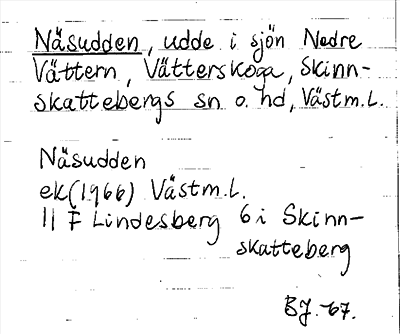 Näsudden, udde i sjön Nedre
Vättern, Vätterskoga, Skinn-
skattebergs sn o. hd, Västm.L.
Näsudden
ek(1966) Västm.L.
11 F Lindesberg 6 i Skinn-
skatteberg
BJ. -67.